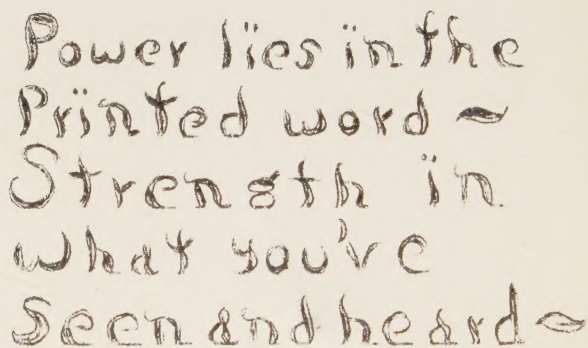 Power lïes ïn the
Prïnted word ~
Strength ïn
what you've
Seen and heard ~